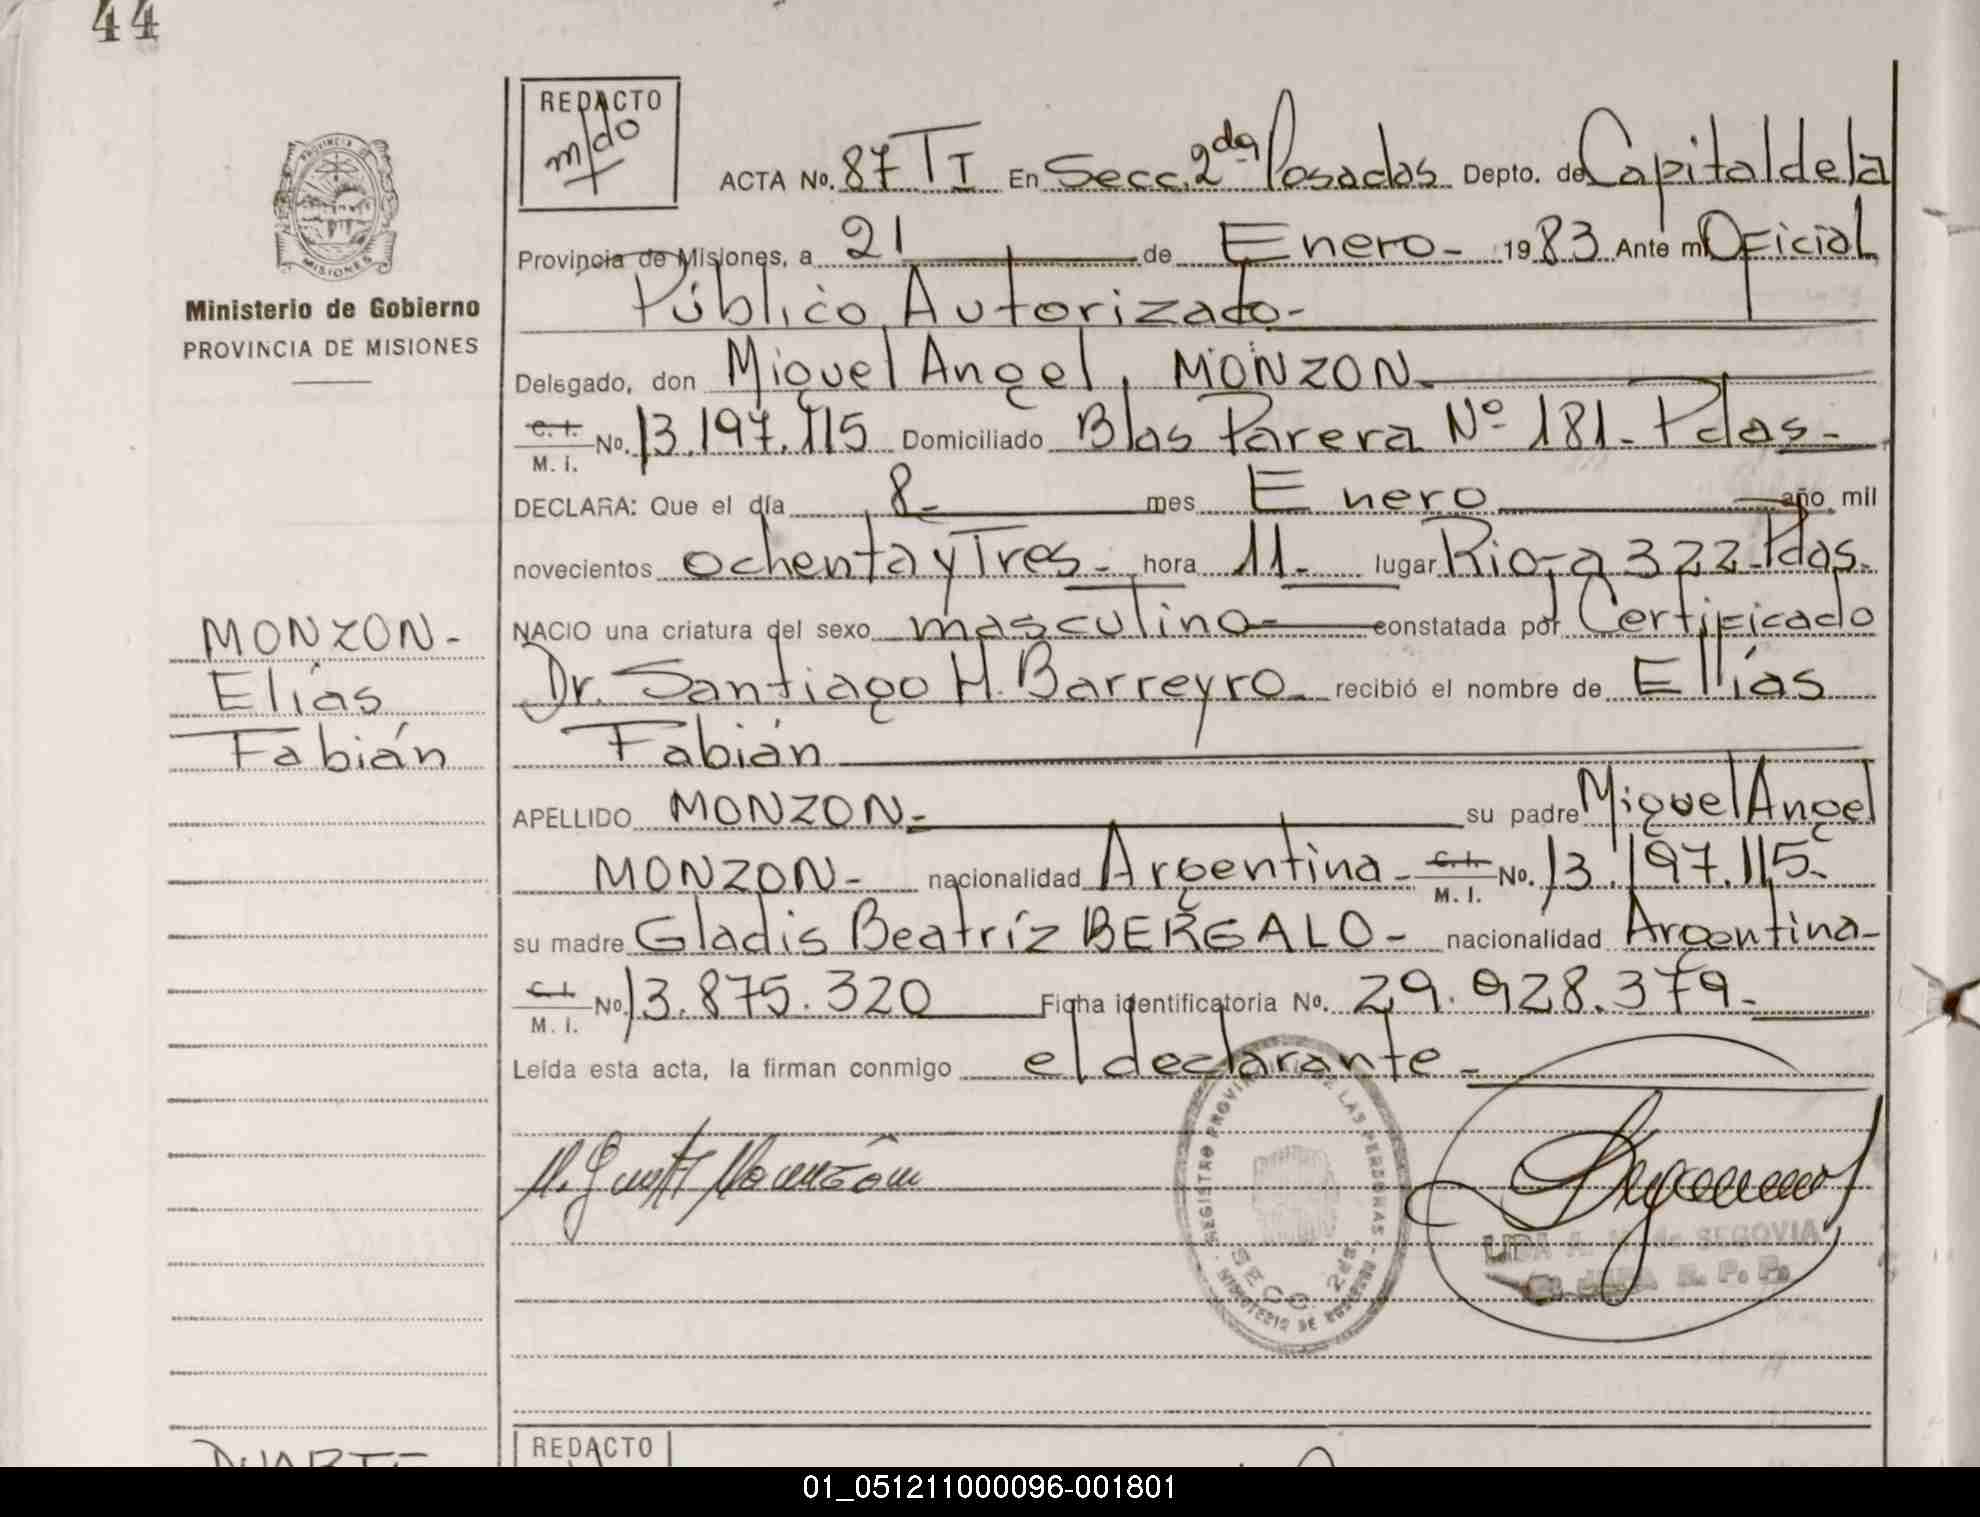 44
REDACTO
m/do
PROVINCIA DE
MISIONES
Ministerio de Gobierno
PROVINCIA DE MISIONES
ACTA No. 87 TI En Secc. 2da Posadas Depto. de Capital de la
Provincia de Misiones, a 21 de Enero - 1983 Ante mi Oficial
Público Autorizado -
Delegado, don Miguel Angel, MONZON -
C. I. M. I. No. 13.197.115 Domiciliado Blas Parera Nº 181 - Pdas -
DECLARA: Que el día 8 - mes Enero año mil
novecientos ochenta y Tres - hora 11 - lugar Rioja 322 - Pdas.
NACIO una criatura del sexo masculino - constatada por Certificado
Dr. Santiago H. Barreyro - recibió el nombre de Elías
Fabián
APELLIDO MONZON - su padre Miguel Angel
MONZON - nacionalidad Argentina - C. I. M. I. No. 13.197.115 -
su madre Gladis Beatríz BERGALO - nacionalidad Argentina -
C. I. M. I. No. 13.875.320 Ficha identificatoria No. 29.928.379 -
Leída esta acta, la firman conmigo el declarante -
MONZON -
Elías
Fabián
REGISTRO PROVINCIAL DE LAS PERSONAS
SECC. 2da.
MINISTERIO DE GOBIERNO
SEGOVIA
JEFA R. P. P.
REDACTO
DUARTE
01_051211000096-001801